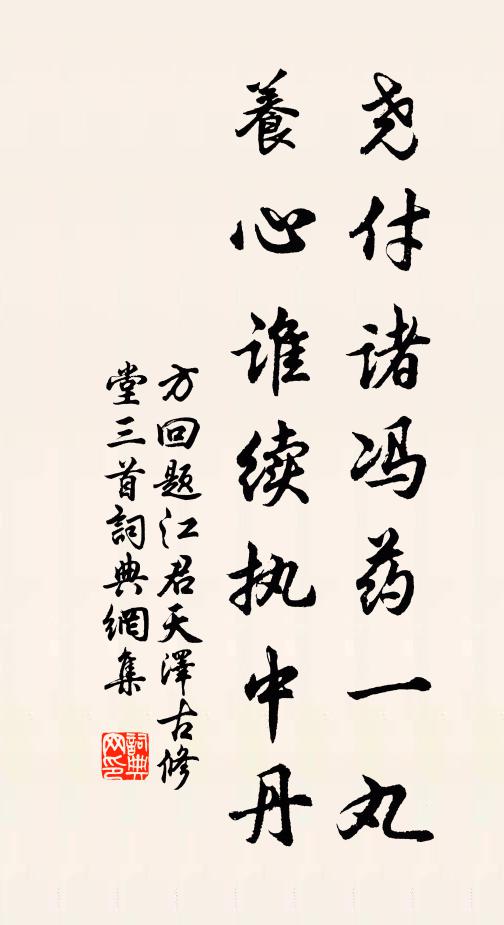 尧付诸冯药一丸
養心谁续执中丹
方回题江君天澤古修
堂三首詞典網集
詞典网印